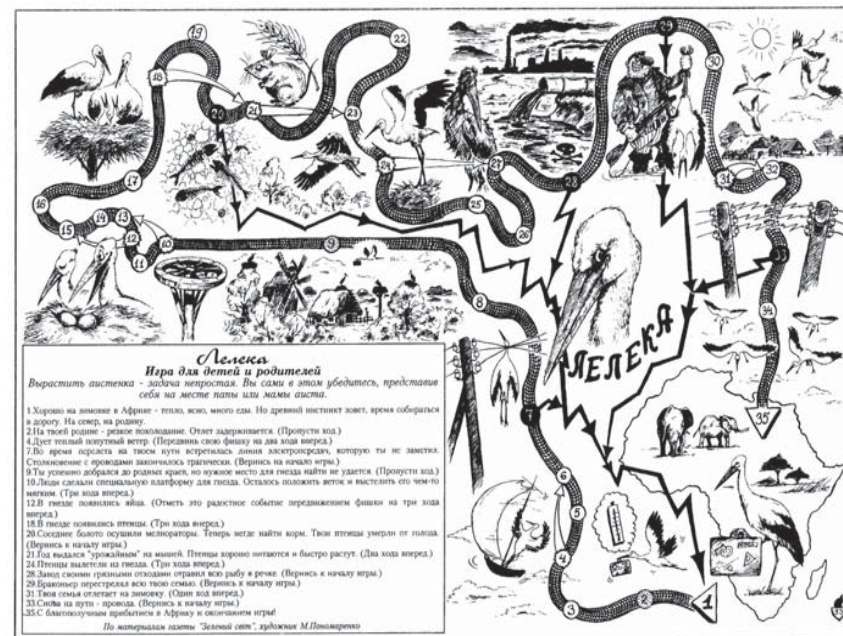 Лелека
Игра для детей и родителей
Вырастить аистенка - задача непростая. Вы сами в этом убедитесь, представив
себя на месте папы или мамы аиста.
1.Хорошо на зимовке в Африке - тепло, ясно, много еды. Но древний инстинкт зовет, время собираться
в дорогу. На север, на родину.
2.На твоей родине - резкое похолодание. Отлет задерживается. (Пропусти ход.)
4.Дует теплый попутный ветер. (Передвинь свою фишку на два хода вперед.)
7.Во время перелета на твоем пути встретилась линия электропередач, которую ты не заметил.
Столкновение с проводами закончилось трагически. (Вернись на начало игры.)
9.Ты успешно добрался до родных краев, но нужное место для гнезда найти не удается. (Пропусти ход.)
10.Люди сделали специальную платформу для гнезда. Осталось положить веток и выстелить его чем-то
мягким. (Три хода вперед.)
12.В гнезде появились яйца. (Отметь это радостное событие передвижением фишки на три хода
вперед.)
18.В гнезде появились птенцы. (Три хода вперед.)
20.Соседнее болото осушили мелиораторы. Теперь негде найти корм. Твои птенцы умерли от голода.
(Вернись к началу игры.)
21.Год выдался "урожайным" на мышей. Птенцы хорошо питаются и быстро растут. (Два хода вперед.)
24.Птенцы вылетели из гнезда. (Три хода вперед.)
28.Завод своими грязными отходами отравил всю рыбу в речке. (Вернись к началу игры.)
29.Браконьер перестрелял всю твою семью. (Вернись к началу игры.)
31.Твоя семья отлетает на зимовку. (Один ход вперед.)
33.Снова на пути - провода. (Вернись к началу игры.)
35.С благополучным прибытием в Африку и окончанием игры!
По материалам газеты "Зелений світ", художник М.Пономаренко
ЛЕЛЕКА
1
2
3
4
5
6
7
8
9
10
11
12
13
14
15
16
17
18
19
20
21
22
23
24
25
26
27
28
29
30
31
32
33
34
35